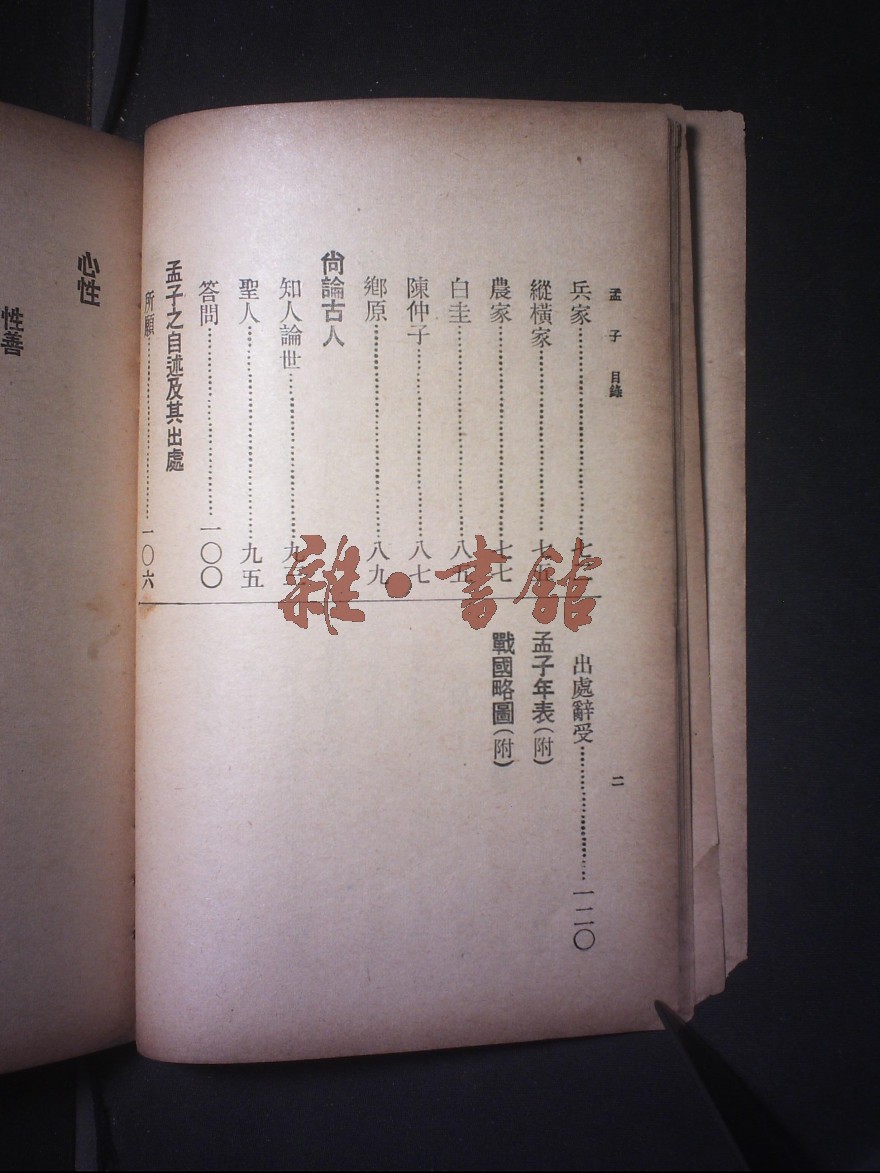 孟子 目錄
兵家
縱橫家
農家……七七
白圭……八五
陳仲子……八七
鄉原……八九
尙論古人
知人論世
聖人……九五
答問……一〇〇
孟子之自述及其出處
所願……一〇六
出處辭受……一二〇
孟子年表(附)
戰國略圖(附)
二
雜·書館
心性
性善